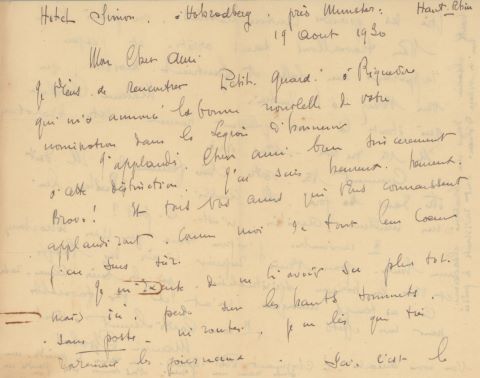 Hotel Simon. à Hohrodberg. près Munster. Haut-Rhin
19 Aout 1930
Mon Cher Ami
Je viens de rencontrer Petit. Quard. à Riquewihr
qui m'a annoncé la bonne nouvelle de votre
nomination dans la Légion d'honneur
J'applaudis. Cher ami bien sincèrement
à cette distinction. J'en suis heureux.
Bravo! Et tous vos amis qui vous connaissent
applaudiront. Comme moi de tout leur Coeur
j'en suis sûr.
Je de ne l'avoir su plus tot.
mais ici. perdu sur les hauts sommets.
sans poste. ni routes. je ne lis que très
rarement les journaux. Ici. c'est le